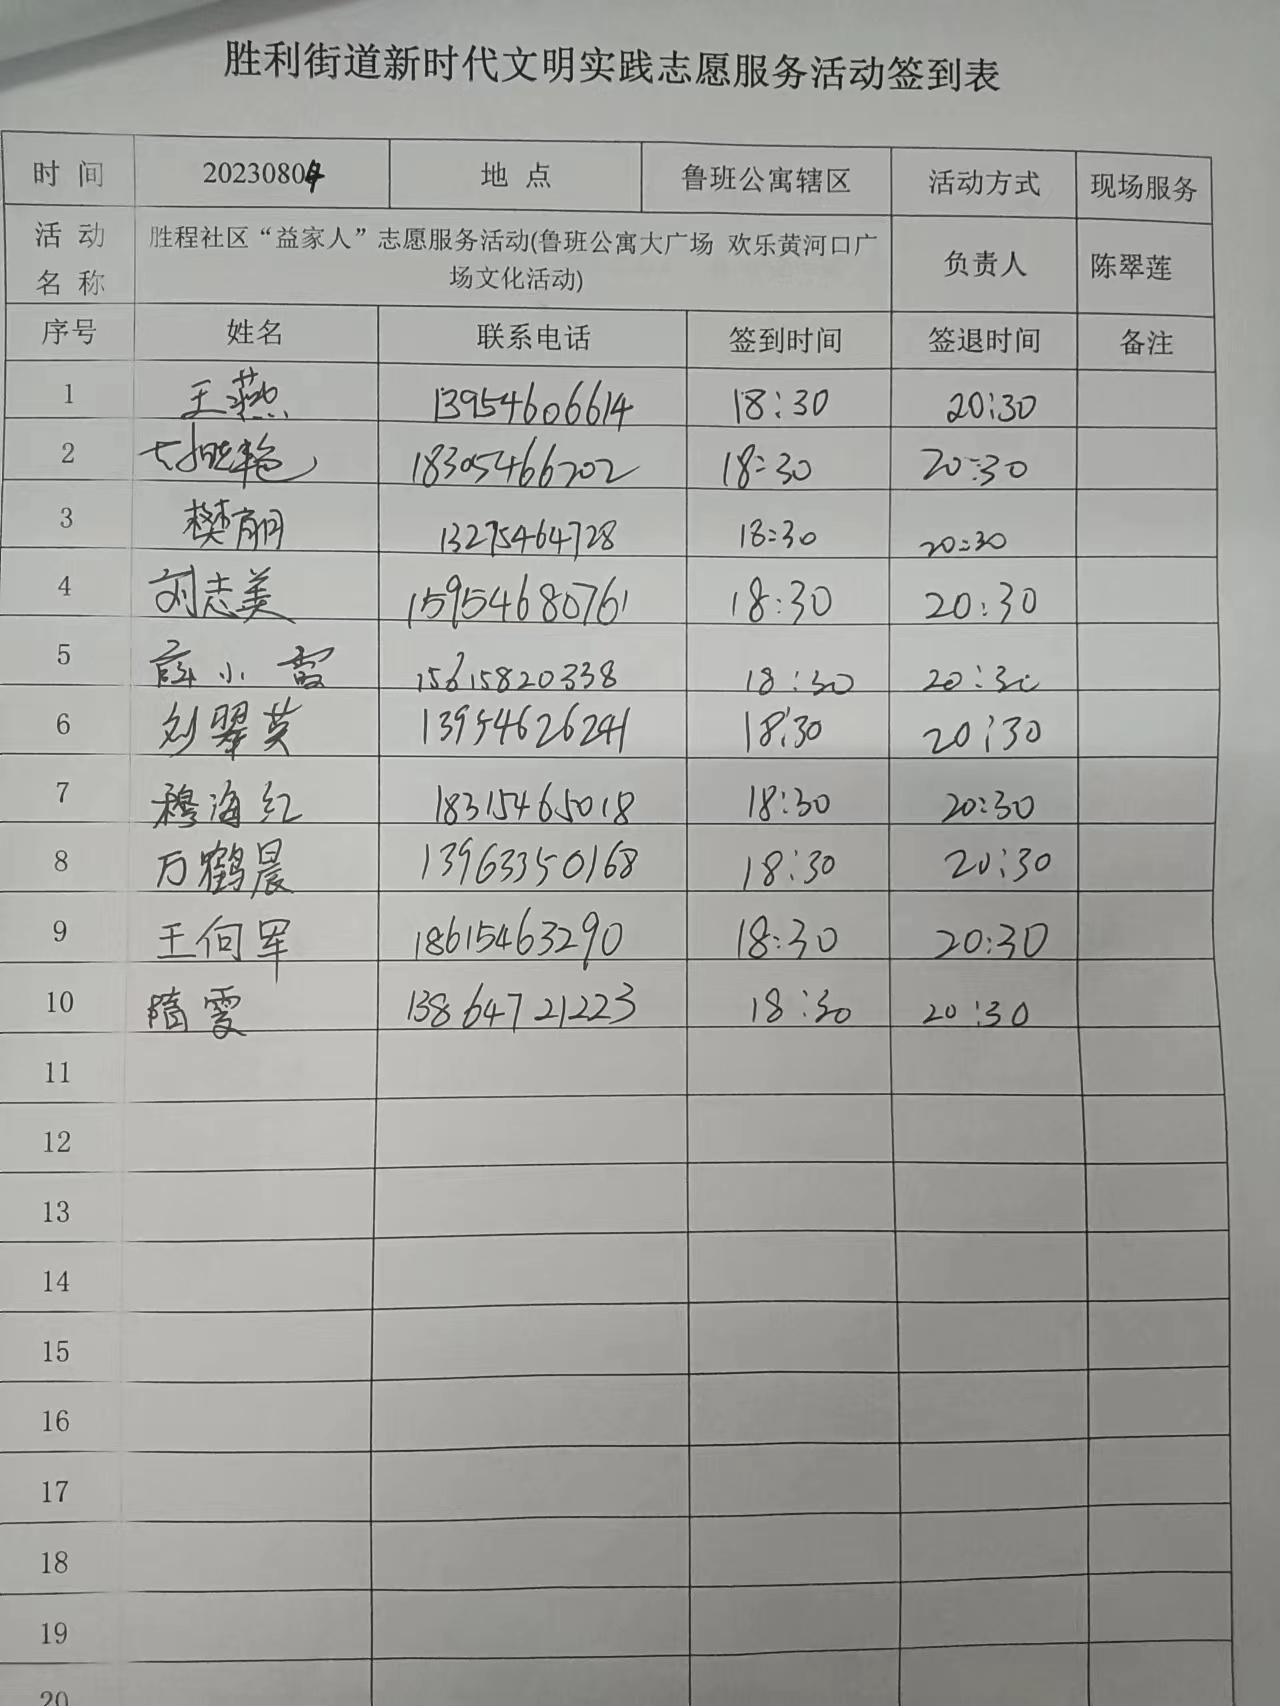 胜利街道新时代文明实践志愿服务活动签到表
时 间 20230804 地 点 鲁班公寓辖区 活动方式 现场服务
活 动 名 称 胜程社区“益家人”志愿服务活动(鲁班公寓大广场 欢乐黄河口广
场文化活动) 负责人 陈翠莲
序号 姓名 联系电话 签到时间 签退时间 备注
1 王燕 13954606614 18:30 20:30
2 18305466702 18:30 20:30
3 樊丽 13275464728 18:30 20:30
4 刘志美 15954680761 18:30 20:30
5 薛小霞 15615820338 18:30 20:30
6 刘翠英 13954626241 18:30 20:30
7 穆海红 18315465018 18:30 20:30
8 万鹤晨 13963350168 18:30 20:30
9 王向军 18615463290 18:30 20:30
10 隋霞 13864721223 18:30 20:30
11
12
13
14
15
16
17
18
19
20